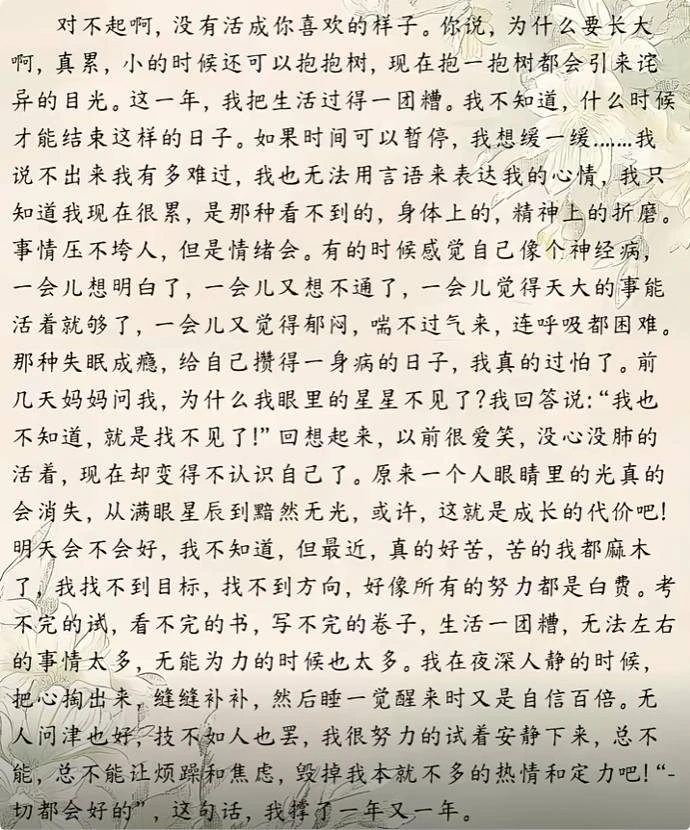 对不起啊，没有活成你喜欢的样子。你说，为什么要长大
啊，真累，小的时候还可以抱抱树，现在抱一抱树都会引来诧
异的目光。这一年，我把生活过得一团糟。我不知道，什么时候
才能结束这样的日子。如果时间可以暂停，我想缓一缓……我
说不出来我有多难过，我也无法用言语来表达我的心情，我只
知道我现在很累，是那种看不到的，身体上的，精神上的折磨。
事情压不垮人，但是情绪会。有的时候感觉自己像个神经病，
一会儿想明白了，一会儿又想不通了，一会儿觉得天大的事能
活着就够了，一会儿又觉得郁闷，喘不过气来，连呼吸都困难。
那种失眠成瘾，给自己攒得一身病的日子，我真的过怕了。前
几天妈妈问我，为什么我眼里的星星不见了?我回答说:“我也
不知道，就是找不见了!”回想起来，以前很爱笑，没心没肺的
活着，现在却变得不认识自己了。原来一个人眼睛里的光真的
会消失，从满眼星辰到黯然无光，或许，这就是成长的代价吧!
明天会不会好，我不知道，但最近，真的好苦，苦的我都麻木
了，我找不到目标，找不到方向，好像所有的努力都是白费。考
不完的试，看不完的书，写不完的卷子，生活一团糟，无法左右
的事情太多，无能为力的时候也太多。我在夜深人静的时候，
把心掏出来，缝缝补补，然后睡一觉醒来时又是自信百倍。无
人问津也好，技不如人也罢，我很努力的试着安静下来，总不
能，总不能让烦躁和焦虑，毁掉我本就不多的热情和定力吧!“一
切都会好的”，这句话，我撑了一年又一年。